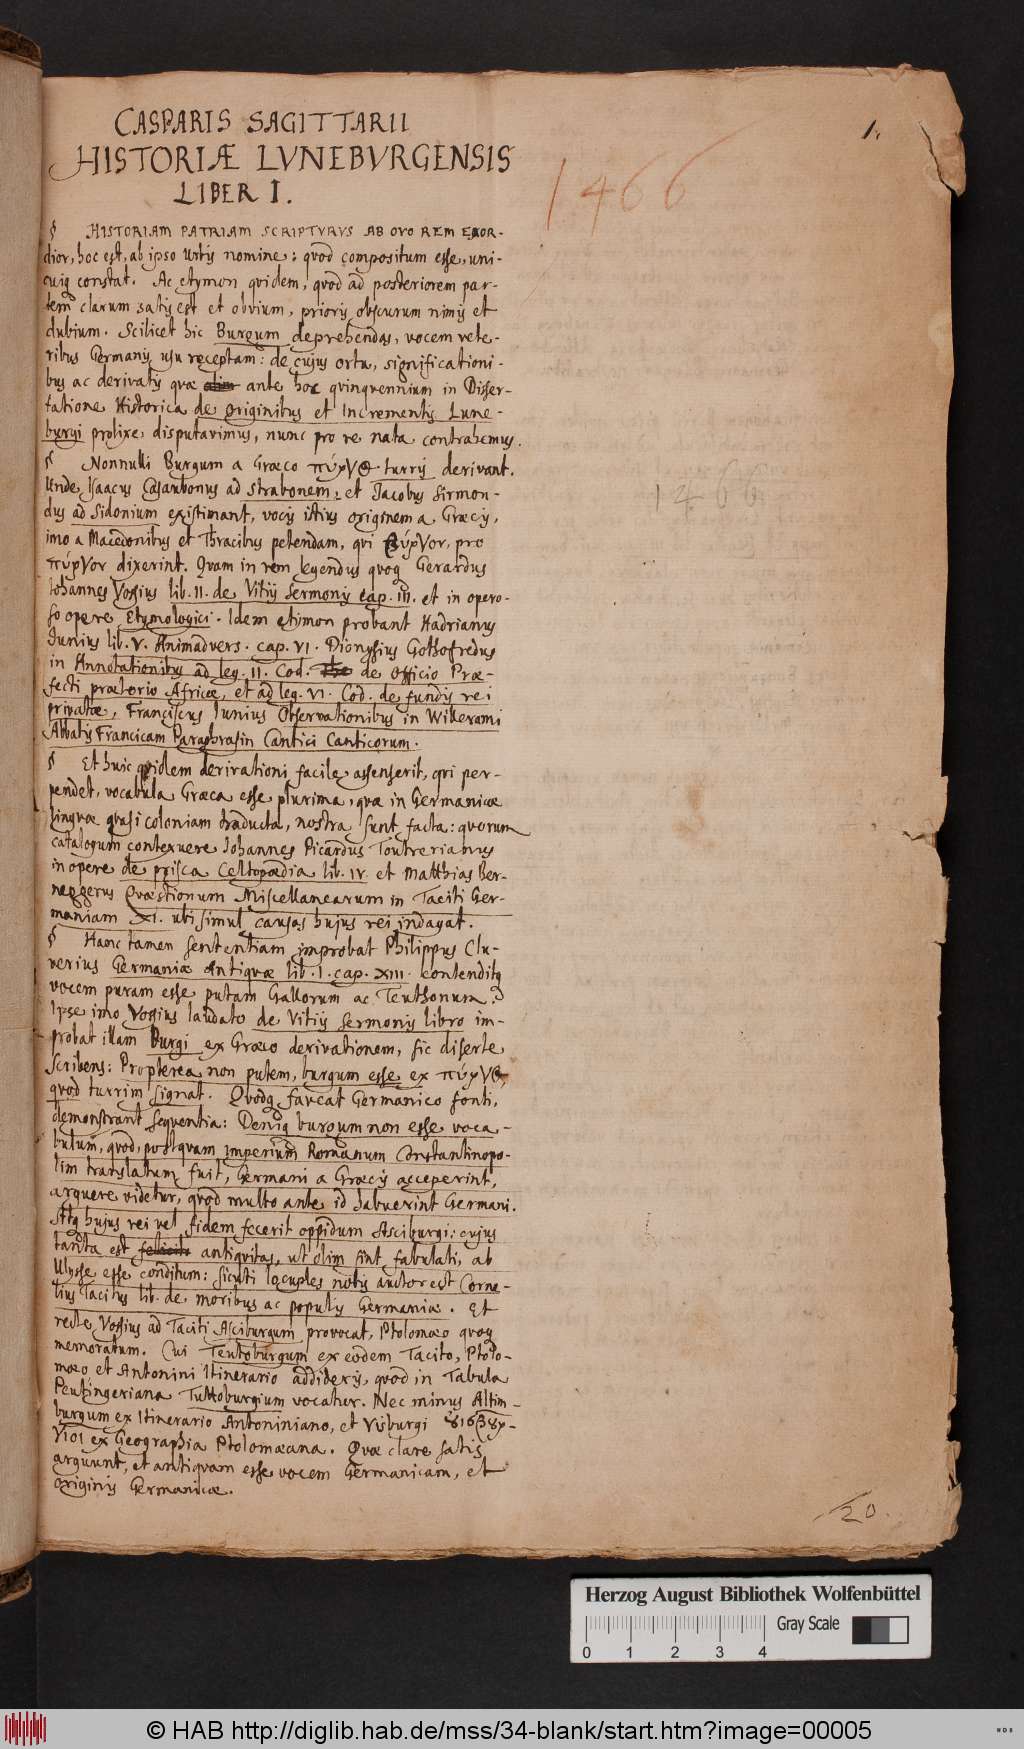 CASPARIS SAGITTARII
HISTORIÆ LVNEBVRGENSIS
LIBER I.
1.
1466
§ HISTORIAM PATRIAM SCRIPTVRVS AB OVO REM EXOR-
dior, hoc est, ab ipso Urbis nomine: quod compositum esse, uni-
cuiq constat. Ac etymon quidem, quod ad posteriorem par-
tem clarum satis est et obvium, prioris obscurum nimis et
dubium. Scilicet hic Burgum deprehendas, vocem vete-
ribus Germanis usu receptam: de cujus ortu, significationi-
bus ac derivatis quæ ante hoc quinquennium in Disser-
tatione Historica de originibus et Incrementis Lune-
burgi prolixe disputavimus, nunc pro re nata contrahemus.
§ Nonnulli Burgum a Græco πύργος turris derivant.
Unde Isaacus Casaubonus ad Strabonem, et Jacobus Sirmon-
dus ad Sidonium existimant, vocis istius originem a Græcis,
imo a Macedonibus et Thracibus petendam, qui βύργον, pro
πύργον dixerint. Quam in rem legendus quoq Gerardus
Iohannes Vossius lib. II. de Vitiis Sermonis cap. III. et in opero-
so opere Etymologici. Idem etimon probant Hadrianus
Iunius lib. V. Animadvers. cap. VI. Dionysius Gothofredus
in Annotationibus ad leg. II. Cod. de Officio Præ-
fecti prætorio Africæ, et ad leg. VI. Cod. de fundis rei
privatæ, Franciscus Iunius Observationibus in Willerami
Abbatis Francicam Paraphrasin Cantici Canticorum.
§ Et huic quidem derivationi facile assenserit, qui per-
pendet, vocabula Græca esse plurima, quæ in Germanicæ
linguæ quasi coloniam traducta, nostra sunt facta: quorum
catalogum contexuere Iohannes Picardus Toutrerianus
in opere de prisca Celtopædia lib. IV. et Matthias Ber-
neggerus Quæstionum Miscellanearum in Taciti Ger-
maniam XI. ubi simul causas hujus rei indagat.
§ Hanc tamen sententiam improbat Philippus Clu-
verius Germaniæ Antiquæ lib. I. cap. XIII. contenditq
vocem puram esse putam Gallorum ac Teuthonum.
Ipse imo Vossius laudato de Vitiis Sermonis libro im-
probat illam Burgi ex Græco derivationem, sic diserte
scribens: Propterea non putem, burgum esse ex πύργος,
quod turrim signat. Quodq faveat Germanico fonti,
demonstrant sequentia: Deniq burgum non esse voca-
bulum, quod, postquam imperium Romanum Constantinopo-
lim translatum fuit, Germani a Græcis acceperint,
arguere videtur, quod multo ante id habuerint Germani.
Atq hujus rei vel fidem fecerit oppidum Asciburgi: cujus
tanta est antiquitas, ut olim sint fabulati, ab
Ulysse esse conditum: sicuti locuples nobis auctor est Corne-
lius Tacitus lib. de moribus ac populis Germaniæ. Et
recte Vossius ad Taciti Asciburgum provocat, Ptolomæo quoq
memoratum. Cui Teutoburgum ex eodem Tacito, Ptolo-
mæo et Antonini Itinerario addideris, quod in Tabula
Peutingeriana Tuttoburgium vocatur. Nec minus Altim-
burgum ex Itinerario Antoniniano, et Visburgi ȣισβȣρ-
γιοι ex Geographia Ptolomæana. Quæ clare satis
arguunt, et antiquam esse vocem Germanicam, et
originis Germanicæ.
1466
20.
Herzog August Bibliothek Wolfenbüttel
0 1 2 3 4
Gray Scale
© HAB http://diglib.hab.de/mss/34-blank/start.htm?image=00005